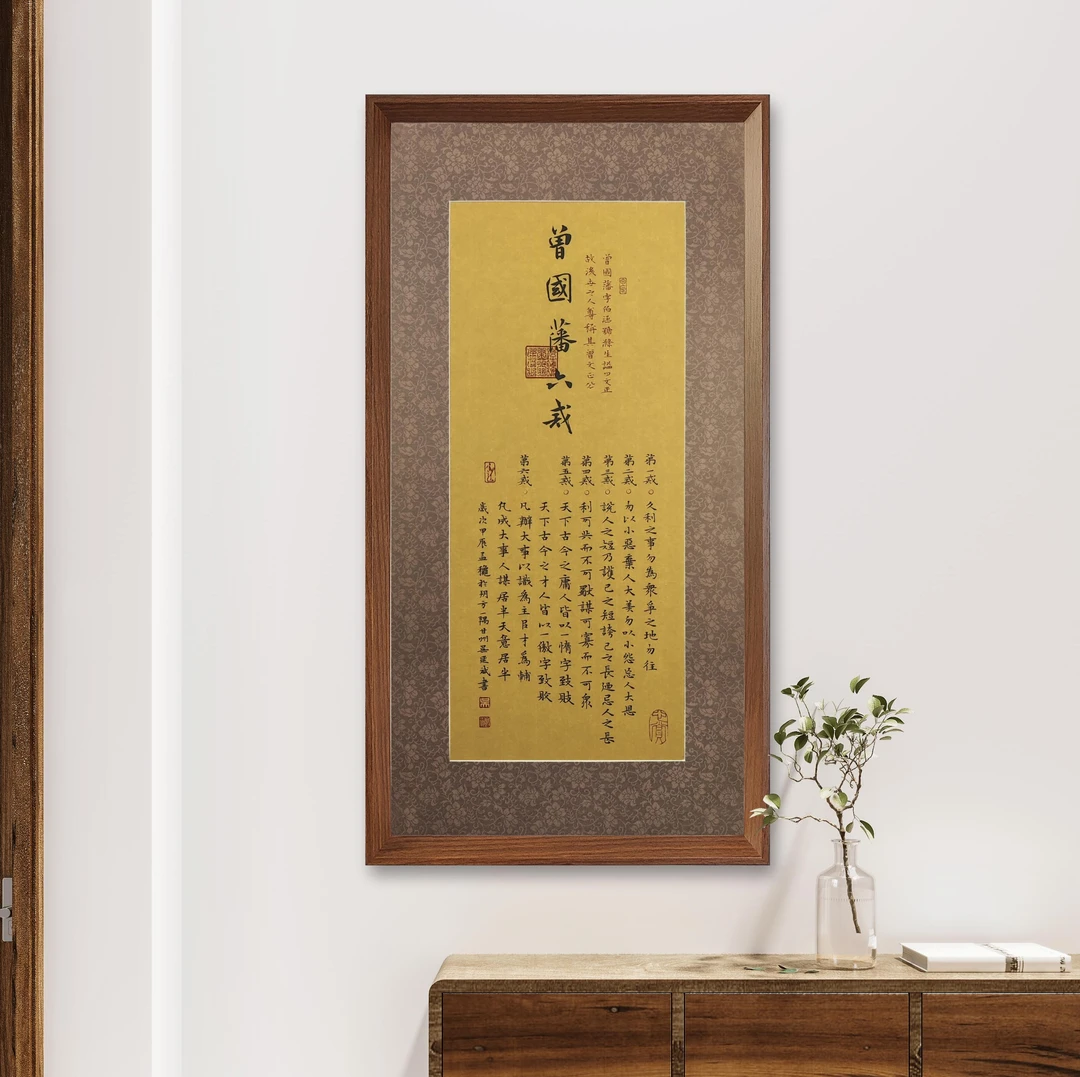 曾國藩六戒
曾國藩字伯涵號滌生謚曰文正
故後世之人尊稱其曾文正公
第一戒。久利之事勿為衆爭之地勿往
第二戒。勿以小惡棄人大美勿以小怨忘人大恩
第三戒。說人之短乃護己之短誇己之長迺忌人之長
第四戒。利可共而不可獸謀可寡而不可衆
第五戒。天下古今之庸人皆以一惰字致敗
天下古今之才人皆以一傲字致敗
第六戒。凡辦大事以識為主㠯才為輔
凡成大事人謀居半天意居半
歲次甲辰孟龝於朔方一隅甘州書